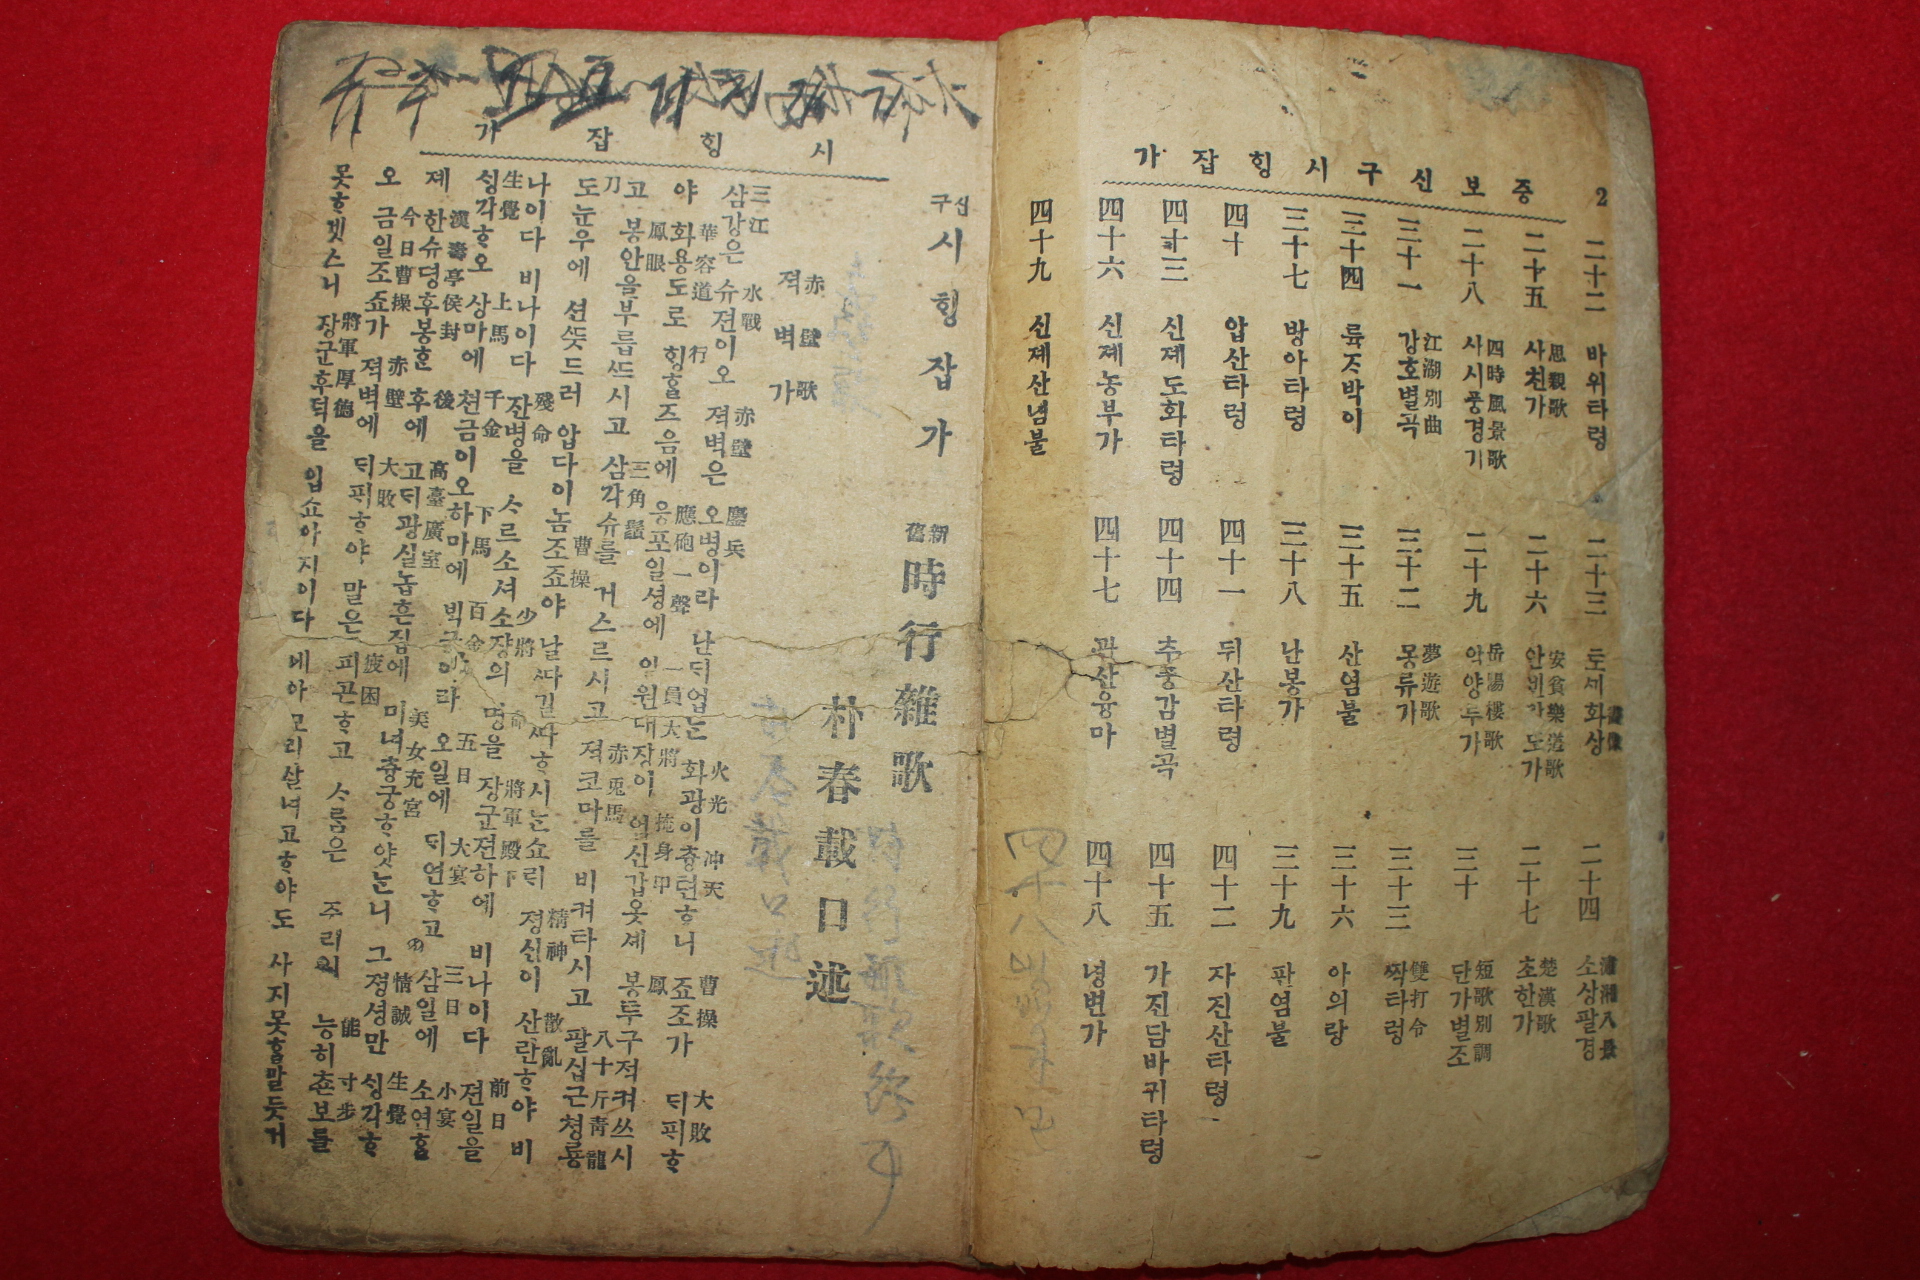 2 증보신구시힝잡가
二十二 바위타령
二十三 토세화상
二十四 소상팔경 瀟湘八景
二十五 사친가 思親歌
二十六 安貧樂道歌
二十七 초한가 楚漢歌
二十八 사시풍경기 四時風景歌
二十九 악양루가 岳陽樓歌
三十 단가별조 短歌別調
三十一 강호별곡 江湖別曲
三十二 몽류가 夢遊歌
三十三 짝타령 雙打令
三十四 륙ᄌᆞ박이
三十五 산염불
三十六 아의랑
三十七 방아타령
三十八 난봉가
三十九 판염불
四十 압산타령
四十一 뒤산타령
四十二 자진산타령
四十三 신졔도화타령
四十四 추풍감별곡
四十五 가진담바귀타령
四十六 신졔농부가
四十七 관산융마
四十八 녕변가
四十九 신졔산념불
시힝잡가
신구 시힝잡가
新舊 時行雜歌
朴春載口述
젹벽가 赤壁歌
삼강은 슈젼이오 젹벽은 오병이라 난듸업는 화광이츙텬ᄒᆞ니 죠조가 ᄃᆡ픠ᄒᆞ
三江 水戰 赤壁 鏖兵 火光 冲天 曹操 大敗
야 화용도로 힝ᄒᆞᆯ즈음에 응포일셩에 일원대장이 엄신갑옷셰 봉투구젹켜쓰시
華容道 行 應砲一聲 一員大將 掩身甲 鳳
고 봉안을부릅ᄯᅳ시고 삼각슈를 거스르시고 젹코마를 비켜타시고 팔십근쳥룡
鳳眼 三角鬚 赤兎馬 八十斤靑龍
도눈우에 션ᄯᅳᆺ드러 압다이놈조죠야 날ᄯᅡ길ᄯᅡᄒᆞ시는쇼릐 졍신이 산란ᄒᆞ야 비
刀 曹操 精神 散亂
나이다 비나이다 잔병을 ᄉᆞ르소셔 소쟝의 명을 장군젼하에 비나이다 젼일을
殘命 少將 命 將軍殿下 前日
싱각ᄒᆞ오 상마에 쳔금이오하마에 빅금이라 오일에 ᄃᆡ연ᄒᆞ고 삼일에 소연ᄒᆞᆯ
生覺 上馬 千金 下馬 百金 五日 大宴 三日 小宴
졔 한슈뎡후봉ᄒᆞᆫ 후에 고ᄃᆡ광실놉흔집에 미녀츙궁ᄒᆞ얏느니 그졍셩만 싱각ᄒᆞ
漢壽亭侯封 後 高臺廣室 美女充宮 情誠 生覺
오 금일조죠가 젹벽에 ᄃᆡ픠ᄒᆞ야 말은 피곤ᄒᆞ고 ᄉᆞ름은 주리여 능히쵼보를
今日曹操 赤壁 大敗 疲困 能 寸步
못ᄒᆞ겟스니 장군후덕을 입쇼아지이다 네아모리살녀고ᄒᆞ야도 사지못ᄒᆞᆯ말듯거
將軍厚德